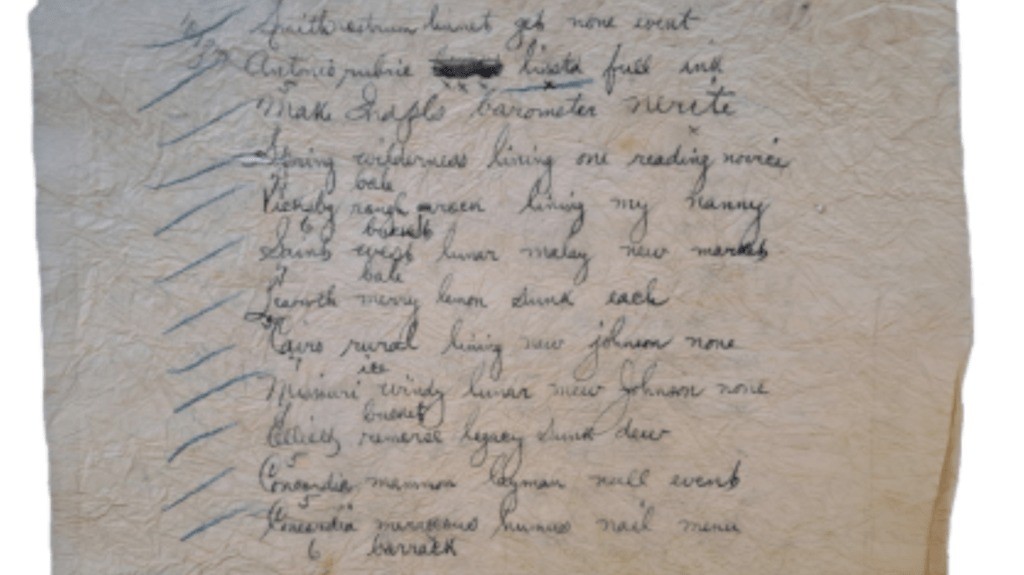 Smith nostrum linnet get none event
Antonio rubric lissta full ink
Make Indpls barometer nerite
Spring wilderness lining one reading novice
bale
Vicksby rough rack lining my nanny
6 bucket
Saint west lunar malay new market
bale
Leavwth merry lemon sunk each
Cairo rural lining new johnson none
7 ice
Missouri windy lunar mew Johnson none
bucket
Elliott removal legacy sunk dew
5
Concordia mammon layman null event
5
Concordia merraccous humus nail menu
6 barrack